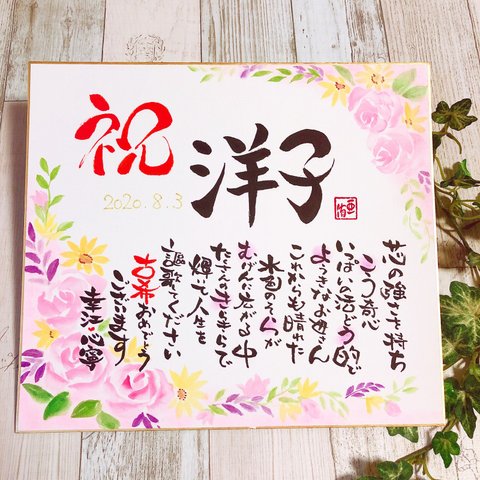 祝
2020.8.3
洋子
芯の強さを持ち
こう奇心
いっぱいの活どう的で
ようきなお母さん
これからも晴れた
水色のそらが
むげんに広がる中
たくさんの
輝く人生を
謳歌してください
古希おめでとう
ございます
幸江・心寧